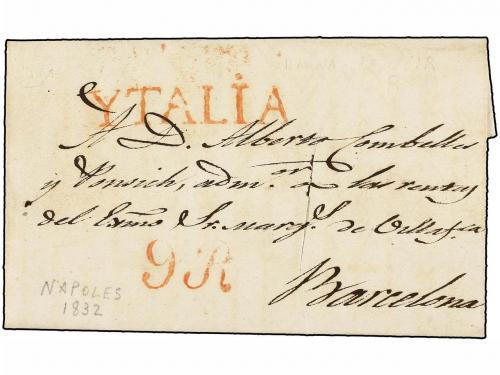 YTALÍA
A D. Alberto Combelles
y Ponsich, adm.or a las rentas
del Exmo Sr. Marq.s de
9 R
Barcelona
NAPOLES
1832